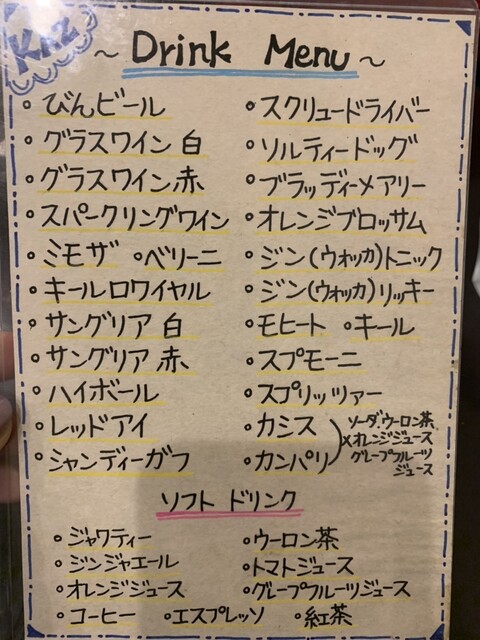 KAZ
~ Drink Menu ~
• びんビール
• グラスワイン 白
• グラスワイン 赤
• スパークリングワイン
• ミモザ • ベリーニ
• キールロワイヤル
• サングリア 白
• サングリア 赤
• ハイボール
• レッドアイ
• シャンディーガフ
• スクリュードライバー
• ソルティードッグ
• ブラッディーメアリー
• オレンジブロッサム
• ジン(ウォッカ)トニック
• ジン(ウォッカ)リッキー
• モヒート • キール
• スプモーニ
• スプリッツァー
• カシス
• カンパリ
ソーダ・ウーロン茶
×オレンジジュース
グレープフルーツ
ジュース
ソフト ドリンク
• ジャワティー
• ジンジャエール
• オレンジジュース
• ウーロン茶
• トマトジュース
• グレープフルーツジュース
• コーヒー • エスプレッソ • 紅茶